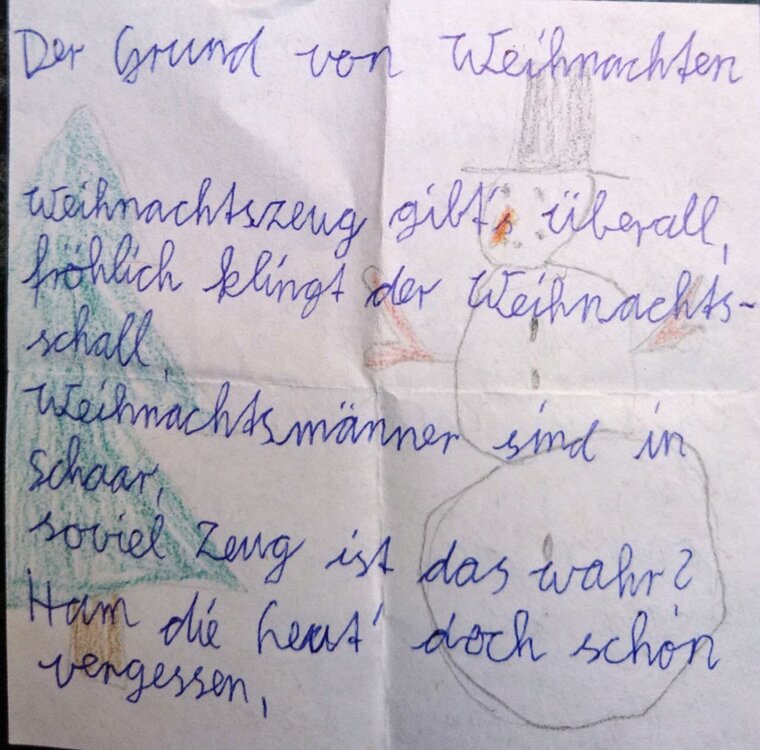 Der Grund von Weihnachten
Weihnachtszeug gibt's überall,
fröhlich klingt der Weihnachts-
schall,
Weihnachtsmänner sind in
Schaar,
soviel Zeug ist das wahr?
Ham die heut' doch schon
vergessen,